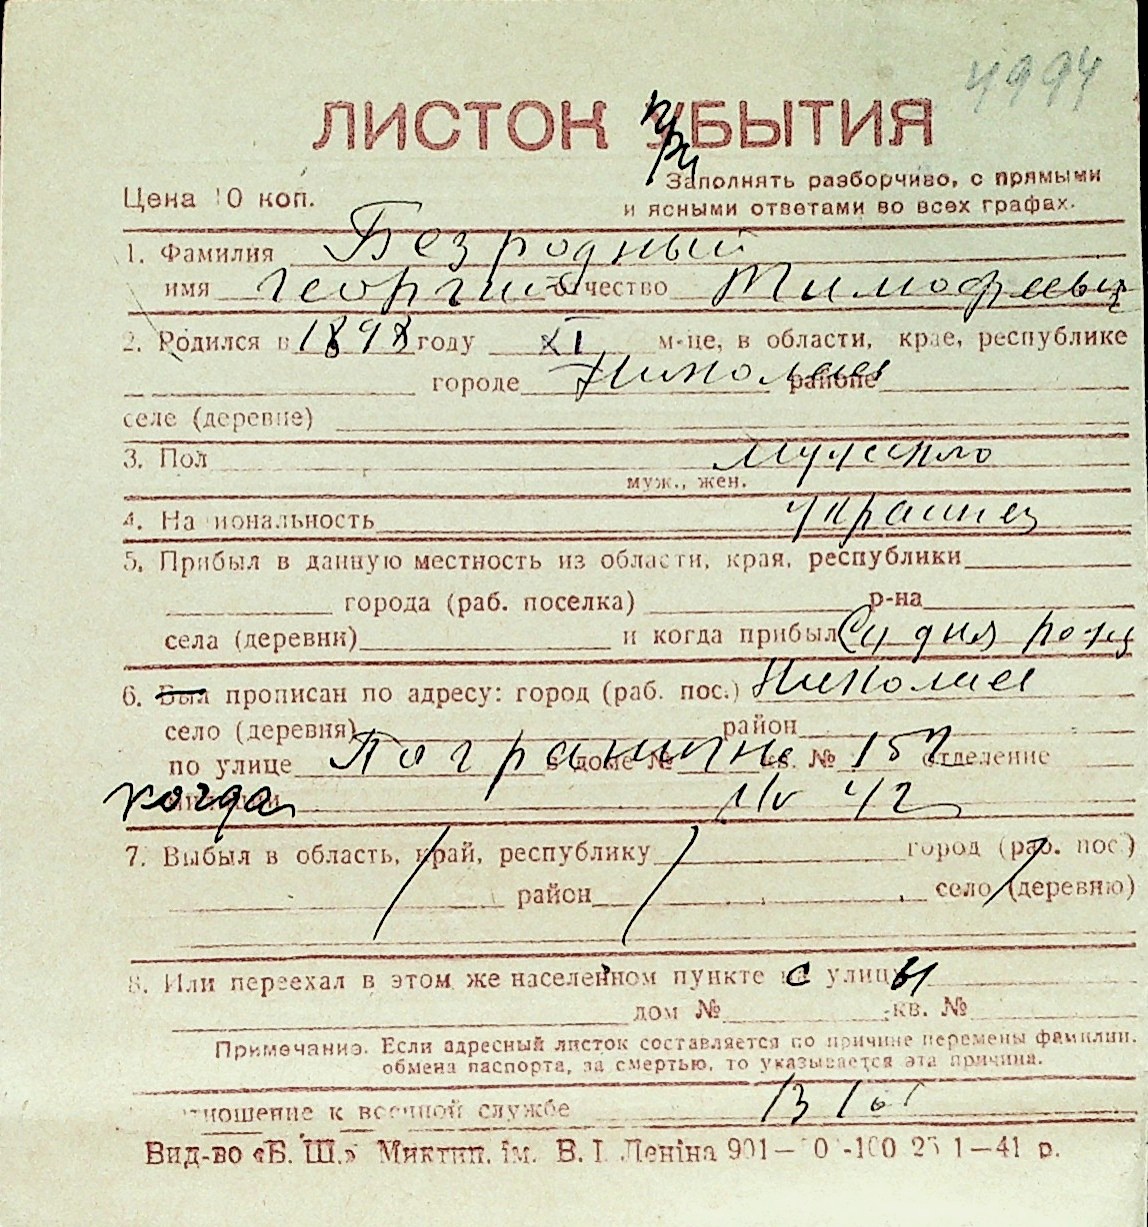 4994
ЛИСТОК прибытия
Цена 10 коп.
Заполнять разборчиво, с прямыми
и ясными ответами во всех графах.
1. Фамилия Безродный
имя Георгий отчество Тимофеевич
2. Родился в 1898 году XI м-це, в области, крае, республике
городе Николаев районе
селе (деревне)
3. Пол мужского
муж., жен.
4. Национальность украинец
5. Прибыл в данную местность из области, края, республики
города (раб. поселка) р-на
села (деревни) и когда прибыл Со дня рожд
6. Был прописан по адресу: город (раб. пос.) Николаев
село (деревня) район
по улице Погранична в доме № кв. № 157 отделение
милиции когда 42
7. Выбыл в область, край, республику город (раб. пос.)
район село (деревню)
8. Или переехал в этом же населенном пункте с улицы
дом № кв. №
Примечание. Если адресный листок составляется по причине перемены фамилии,
обмена паспорта, за смертью, то указывается эта причина.
отношение к военной службе
Вид-во «Б. Ш.» Миктип. ім. В. І. Леніна 901— -100 1—41 р.